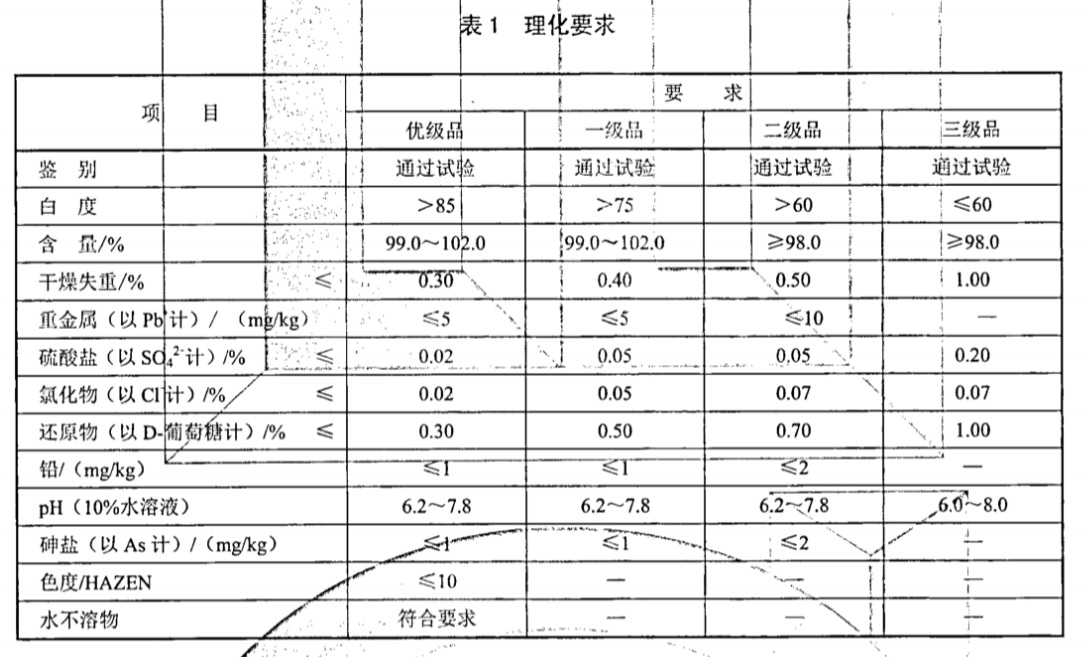 表1 理化要求
项 目 要 求
优级品 一级品 二级品 三级品
鉴 别 通过试验 通过试验 通过试验 通过试验
白 度 >85 >75 >60 ≤60
含 量/% 99.0～102.0 99.0～102.0 ≥98.0 ≥98.0
干燥失重/% ≤ 0.30 0.40 0.50 1.00
重金属（以 Pb 计）/ （mg/kg） ≤5 ≤5 ≤10 —
硫酸盐（以 SO₄²⁻计）/% ≤ 0.02 0.05 0.05 0.20
氯化物（以 Cl 计）/% ≤ 0.02 0.05 0.07 0.07
还原物（以 D-葡萄糖计）/% ≤ 0.30 0.50 0.70 1.00
铅/（mg/kg） ≤1 ≤1 ≤2 —
pH（10%水溶液） 6.2～7.8 6.2～7.8 6.2～7.8 6.0～8.0
砷盐（以 As 计）/（mg/kg） ≤1 ≤1 ≤2 —
色度/HAZEN ≤10 — — —
水不溶物 符合要求 — — —